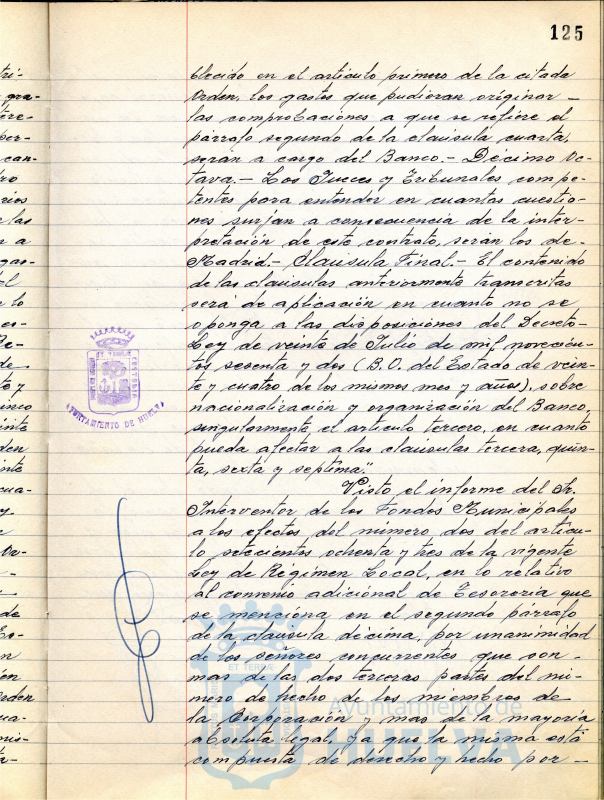 125
blecido en el artículo primero de la citada
Orden, los gastos que pudieran originar -
las comprobaciones a que se refiere el
párrafo segundo de la clausula cuarta,
serán a cargo del Banco.- Décimo Oc-
tava.- Los Jueces y Tribunales compe-
tentes para entender en cuantas cuestio-
nes surjan a consecuencia de la inter-
pretación de este contrato, serán los de-
Madrid.- Clausula Final.- El contenido
de las clausulas anteriormente transcritas
será de aplicación en cuanto no se
oponga a las disposiciones del Decreto-
Ley de veinte de Julio de mil novecien-
tos sesenta y dos (B.O. del Estado de vein-
te y cuatro de los mismos mes y años), sobre
nacionalización y organización del Banco,
singularmente el artículo tercero, en cuanto
pueda afectar a las clausulas tercera, quin-
ta, sexta y septima."
Visto el informe del Sr.
Interventor de los Fondos Municipales
a los efectos del número dos del artícu-
lo setecientos ochenta y tres de la vigente
Ley de Régimen Local, en lo relativo
al convenio adicional de Tesorería que
se menciona en el segundo párrafo
de la clausula décima, por unanimidad
de los señores concurrentes que son -
mas de las dos terceras partes del nú-
mero de hecho de los miembros de
la Corporación y mas de la mayoría
absoluta legal, ya que la misma está
compuesta de derecho y hecho por -
AYUNTAMIENTO DE HUELVA
Ayuntamiento de
HUELVA